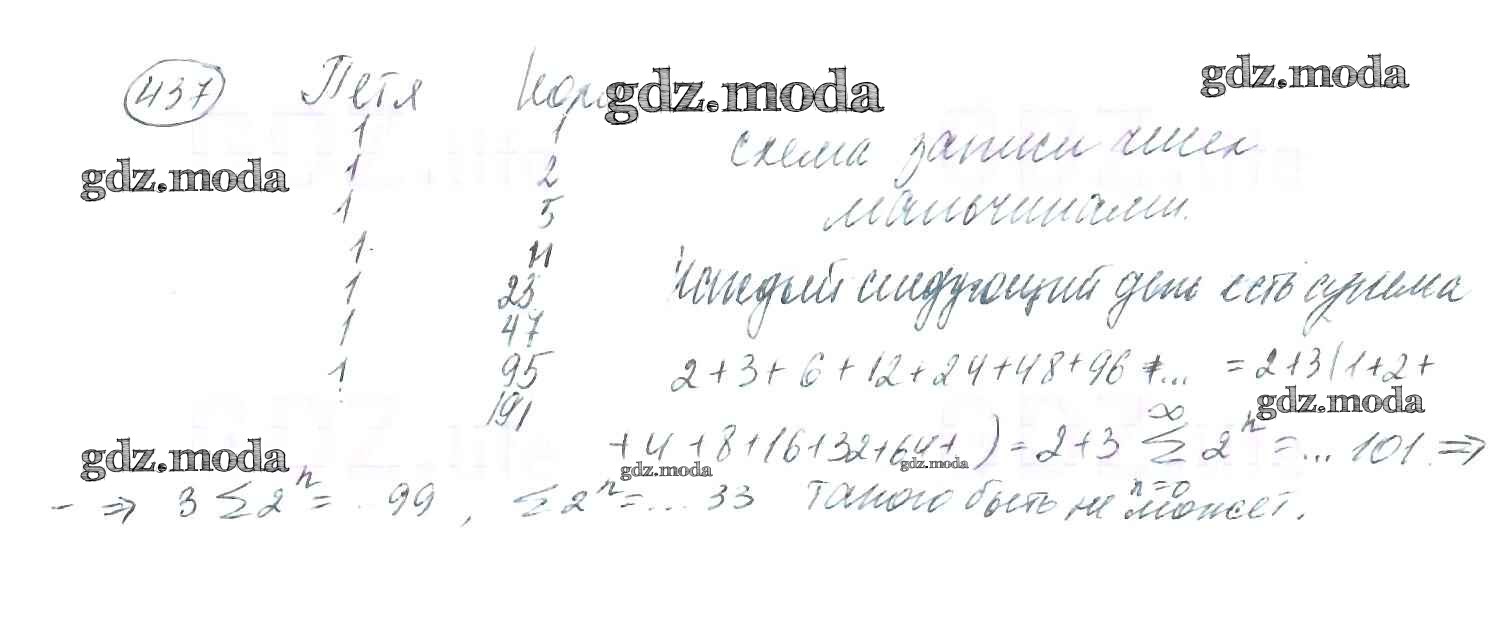 437 Петя Кол gdz.moda gdz.moda
1 1
gdz.moda 1 2 схема записи чисел
1 5 мальчиками.
1 11
1 23 Каждый следующий день есть сумма
1 47
1 95 2+3+6+12+24+48+96+... = 2+3(1+2+
191 gdz.moda
gdz.moda +4+8+16+32+64+ ) = 2+3 ∞ Σ n=0 2^n = ... 101 ⇒
gdz.moda gdz.moda
- ⇒ 3 Σ 2^n = ... 99 , Σ 2^n = ... 33 такого быть не может.